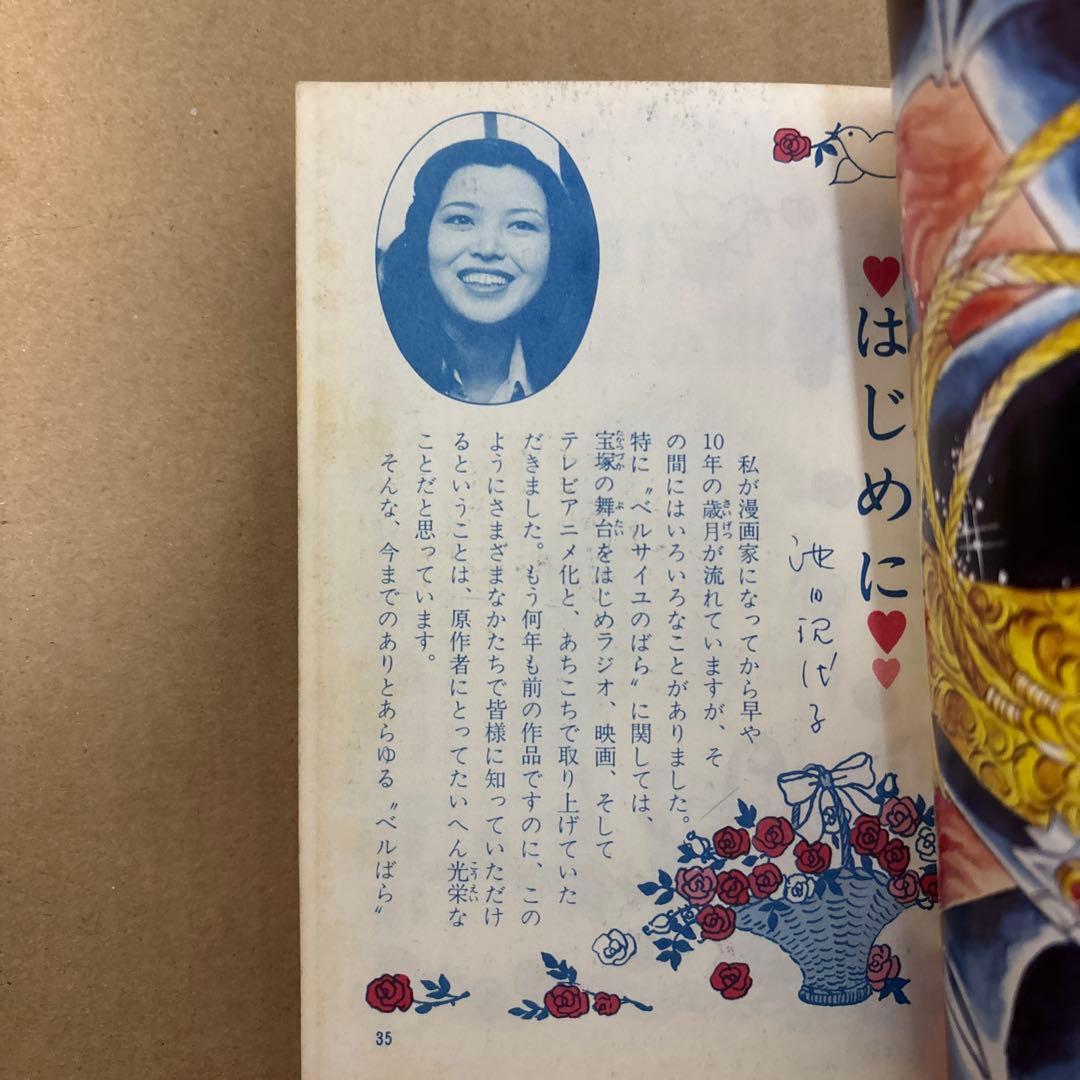 ♥はじめに♥♥
池田理代子
私が漫画家になってから早や
10年の歳月が流れていますが、そ
の間にはいろいろなことがありました。
特に〝ベルサイユのばら〟に関しては、
宝塚の舞台をはじめラジオ、映画、そして
テレビアニメ化と、あちこちで取り上げていた
だきました。もう何年も前の作品ですのに、この
ようにさまざまなかたちで皆様に知っていただけ
るということは、原作者にとってたいへん光栄な
ことだと思っています。
そんな、今までのありとあらゆる〝ベルばら〟
35